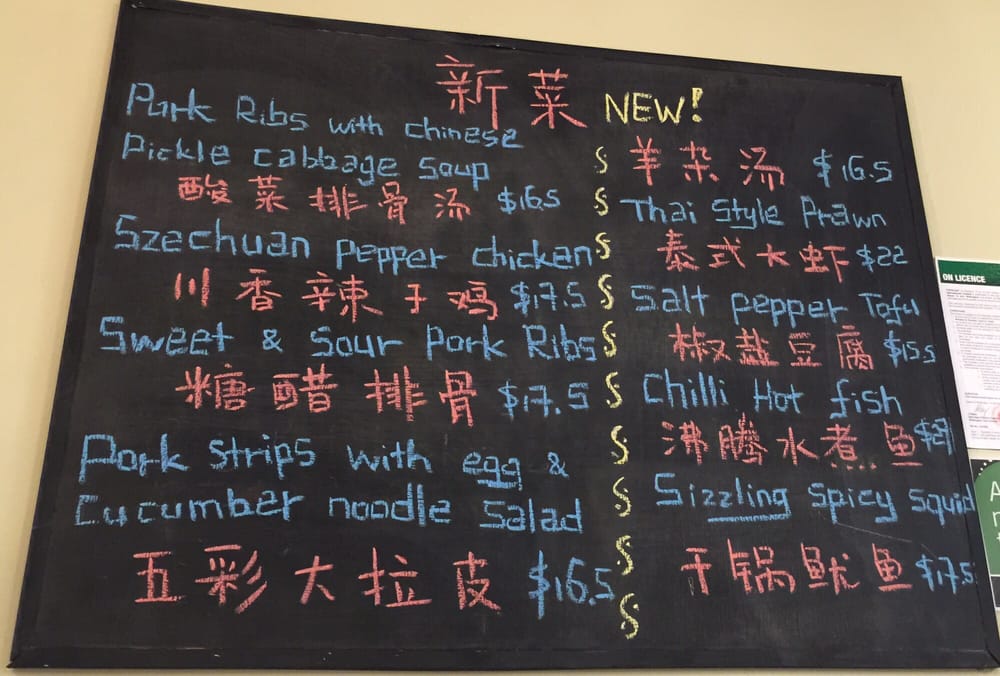 新菜 NEW!
Pork Ribs with Chinese
Pickle cabbage soup
酸菜排骨汤 $16.5
Szechuan pepper chicken
川香辣子鸡 $17.5
Sweet & Sour Pork Ribs
糖醋排骨 $17.5
Pork strips with egg &
Cucumber noodle salad
五彩大拉皮 $16.5
羊杂汤 $16.5
Thai Style Prawn
泰式大虾 $22
Salt pepper Tofu
椒盐豆腐 $15.5
Chilli Hot fish
沸腾水煮鱼
Sizzling spicy squid
干锅鱿鱼 $17.5
ON LICENCE